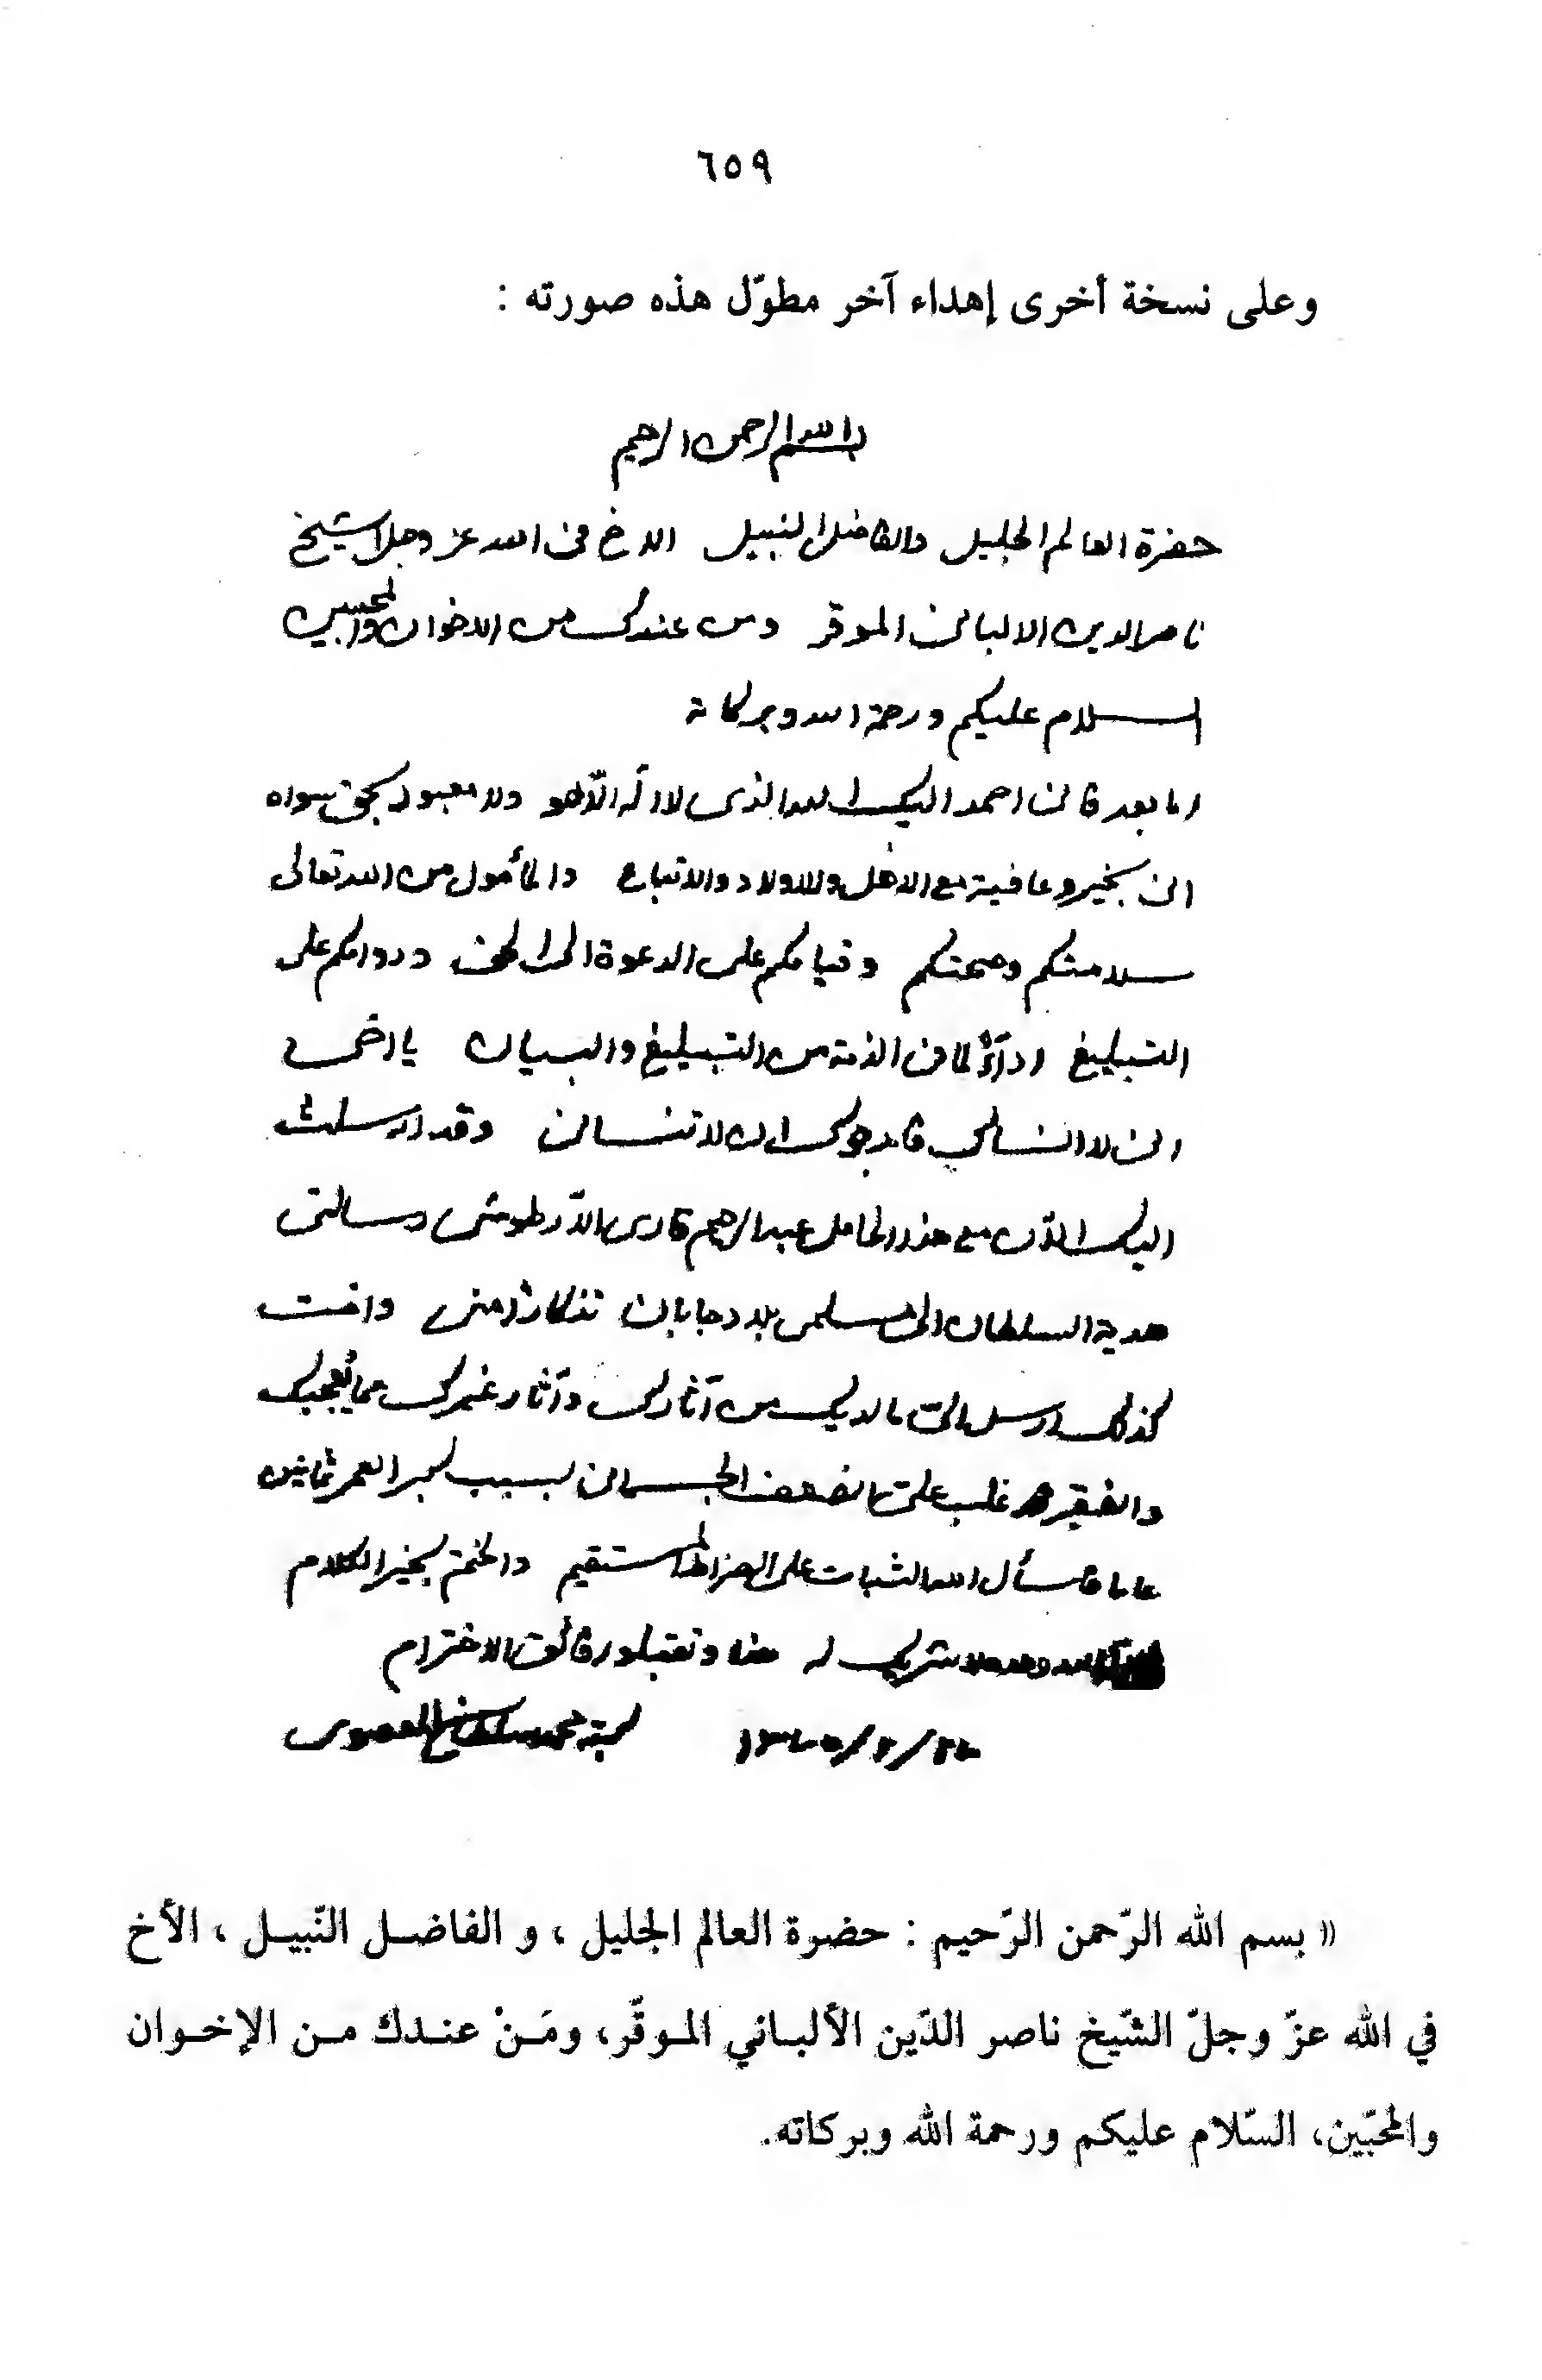 ٦٥٩
وعلى نسخة أخرى إهداء آخر مطوّل هذه صورته :
بسم الله الرحمن الرحيم
حضرة العالم الجليل والفاضل النبيل الاخ فى الله عز وجل الشيخ
ناصر الدين الالبانى الموقر ومن عندك من الاخوان والمحبين
السلام عليكم ورحمة الله وبركاته
اما بعد فانى احمد اليك الله الذى لا اله الّا هو ولا معبود بحق سواه
انى بخير وعافية مع الاهل والاولاد والاتباع والمأمول من الله تعالى
سلامتكم وصحتكم وقيامكم على الدعوة الى الحق ودوامكم على
التبليغ ادآءً لما فى الذمة من التبليغ والبيان يا اخى
انى لا انساك فارجوك ان لا تنسانى وقد ارسلت
اليك الآن مع هذا الحامل عبد الرحيم قارى رسالتى
هدية السلطان الى مسلمى بلاد جابان تذكارًا منى وانت
كذلك ارسل الىّ مالديك من آثارك وآثار غيرك مما يُعجبك
والفقير غلب علىّ الضعف الجسمانى بسبب كبر العمر ثمانين
عاما فاسأل الله الثبات على الصراط المستقيم والختم بخير الكلام
الله وحده لا شريك له هذا وتقبلوا فائق الاحترام
محمد سلطان المعصومى
« بسم الله الرّحمن الرّحيم : حضرة العالم الجليل ، و الفاضل النّبيل ، الأخ
في الله عزّ وجلّ الشّيخ ناصر الدّين الألباني الموقّر، ومَنْ عندك من الإخوان
والمحبّين، السّلام عليكم ورحمة الله وبركاته.